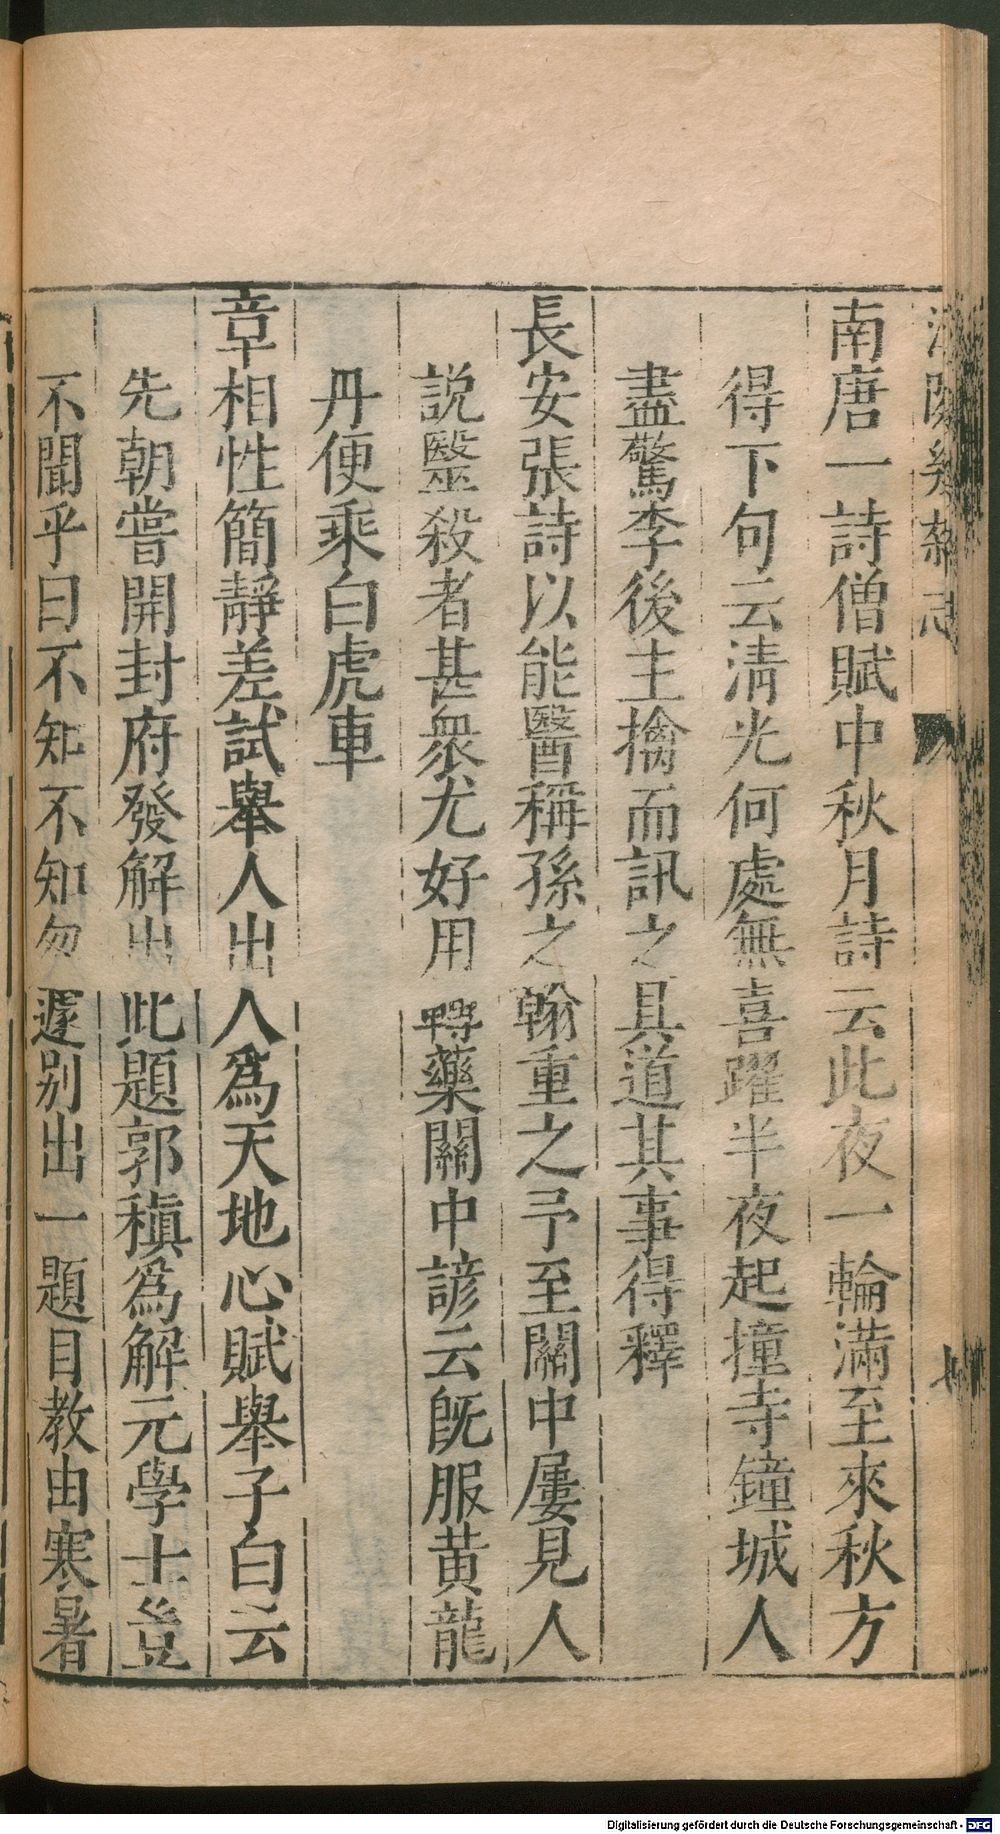 南唐一詩僧賦中秋月詩云此夜一輪滿至來秋方
得下句云淸光何處無喜躍半夜起撞寺鐘城人
盡驚李後主擒而訊之具道其事得釋
長安張詩以能醫稱孫之翰重之予至關中屢見人
説毉殺者甚衆尤好用轉藥關中諺云旣服黃龍
丹便乘白虎車
章相性簡靜差試舉人出人爲天地心賦舉子白云
先朝嘗開封府發解出此題郭稹爲解元學士豈
不聞乎曰不知不知匆遽別出一題目教由寒暑
Digitalisierung gefördert durch die Deutsche Forschungsgemeinschaft - DFG